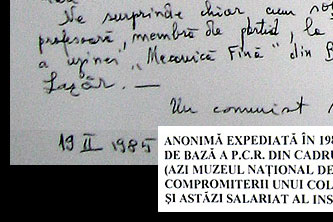 Ne surprinde chiar cum so
profesoară, membră de partid, la
a uzinei "Mecanică Fină" din B
Lazăr. —
Un comunist
19 II 1985
ANONIMĂ EXPEDIATĂ ÎN 198
DE BAZĂ A P.C.R. DIN CADRU
(AZI MUZEUL NAȚIONAL DE
COMPROMITERII UNUI COL
ȘI ASTĂZI SALARIAT AL INS